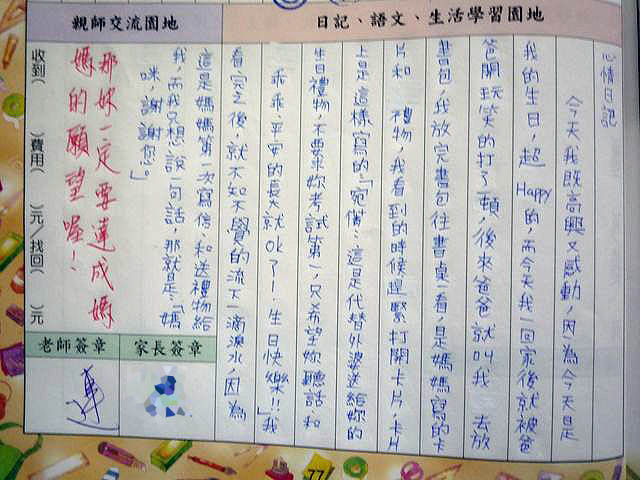 日記、語文、生活學習園地
親師交流園地
心情日記
今天我既高興又感動,因為今天是
我的生日,超Happy的,而今天我一回家後就被爸
爸開玩笑的打了一頓,後來爸爸就叫我去放
書包,我放完書包往書桌一看,是媽媽寫的卡
片和禮物,我看到的時候趕緊打開卡片,卡片
上是這樣寫的:「宛倩:這是代替外婆送給妳的
生日禮物,不要求妳考試第一,只希望妳聽話和
乖乖、平安的長大就ok了!生日快樂!!」我
看完之後,就不知不覺的流下一滴淚水,因為
這是媽媽第一次寫信和送禮物給
我,而我只想說一句話,那就是:「媽
咪,謝謝您。」
那妳一定要達成媽
媽的願望喔!
收到( )費用( )元/找回( )元
家長簽章
老師簽章
77